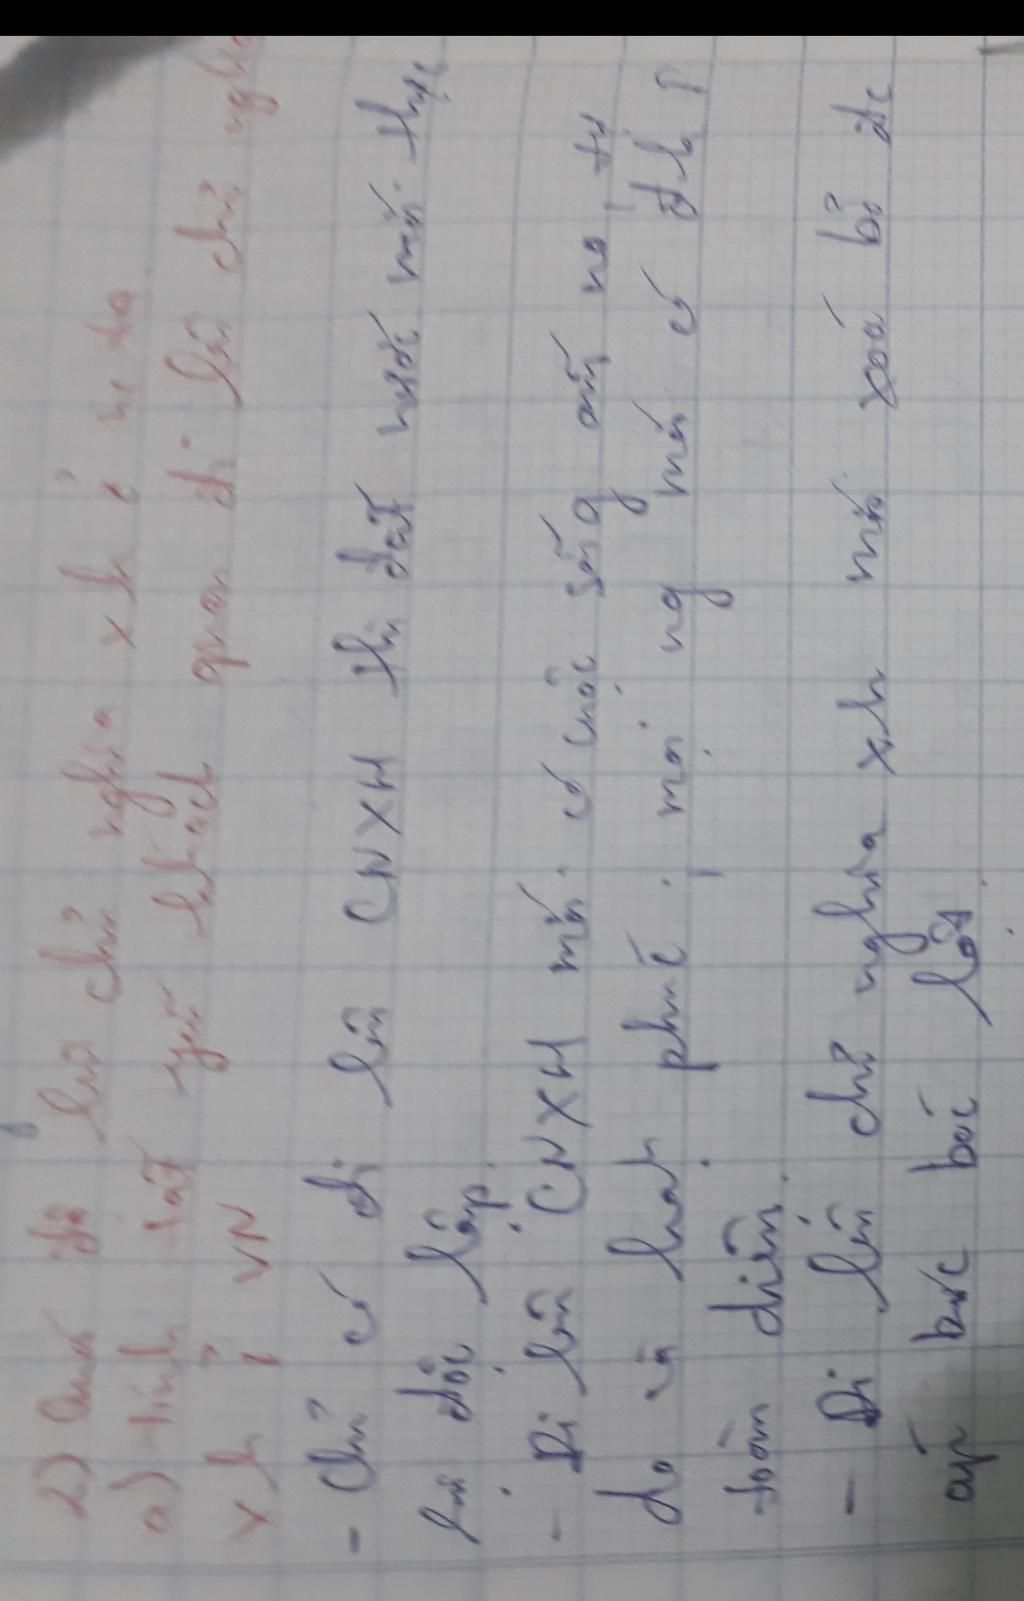 2) Quá độ lên chủ nghĩa xh ở n ta
a) tính tất yếu khách quan đi lên chủ nghĩa
xh ở VN
- Chỉ có đi lên CNXH thì đất nước mới thực
sự độc lập.
- Đi lên CNXH mới có cuộc sống ấm no, tự
do và hạnh phúc, mọi ng mới có đk
toàn diện.
- Đi lên chủ nghĩa xh mới xoá bỏ đc
áp bức bóc lột.